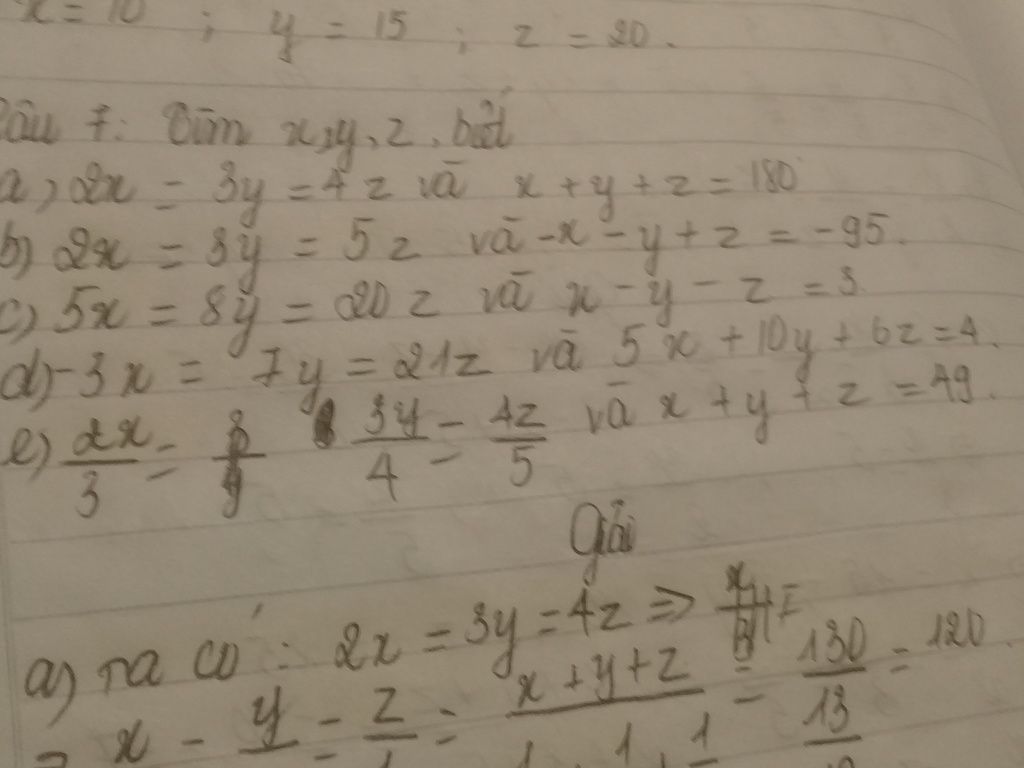 x = 10 ; y = 15 ; z = 20.
Câu 7: Tìm x, y, z, biết
a) 2x = 3y = 4z và x + y + z = 180
b) 2x = 3y = 5z và -x - y + z = -95.
c) 5x = 8y = 20z và x - y - z = 3
d) -3x = 7y = 21z và 5x + 10y + 6z = 4.
e) 2x/3 = 3y/4 = 4z/5 và x + y + z = 49.
Giải
a) Ta có: 2x = 3y = 4z =>
x - y/ = z/1 = x + y + z/ = 130/13 = 120